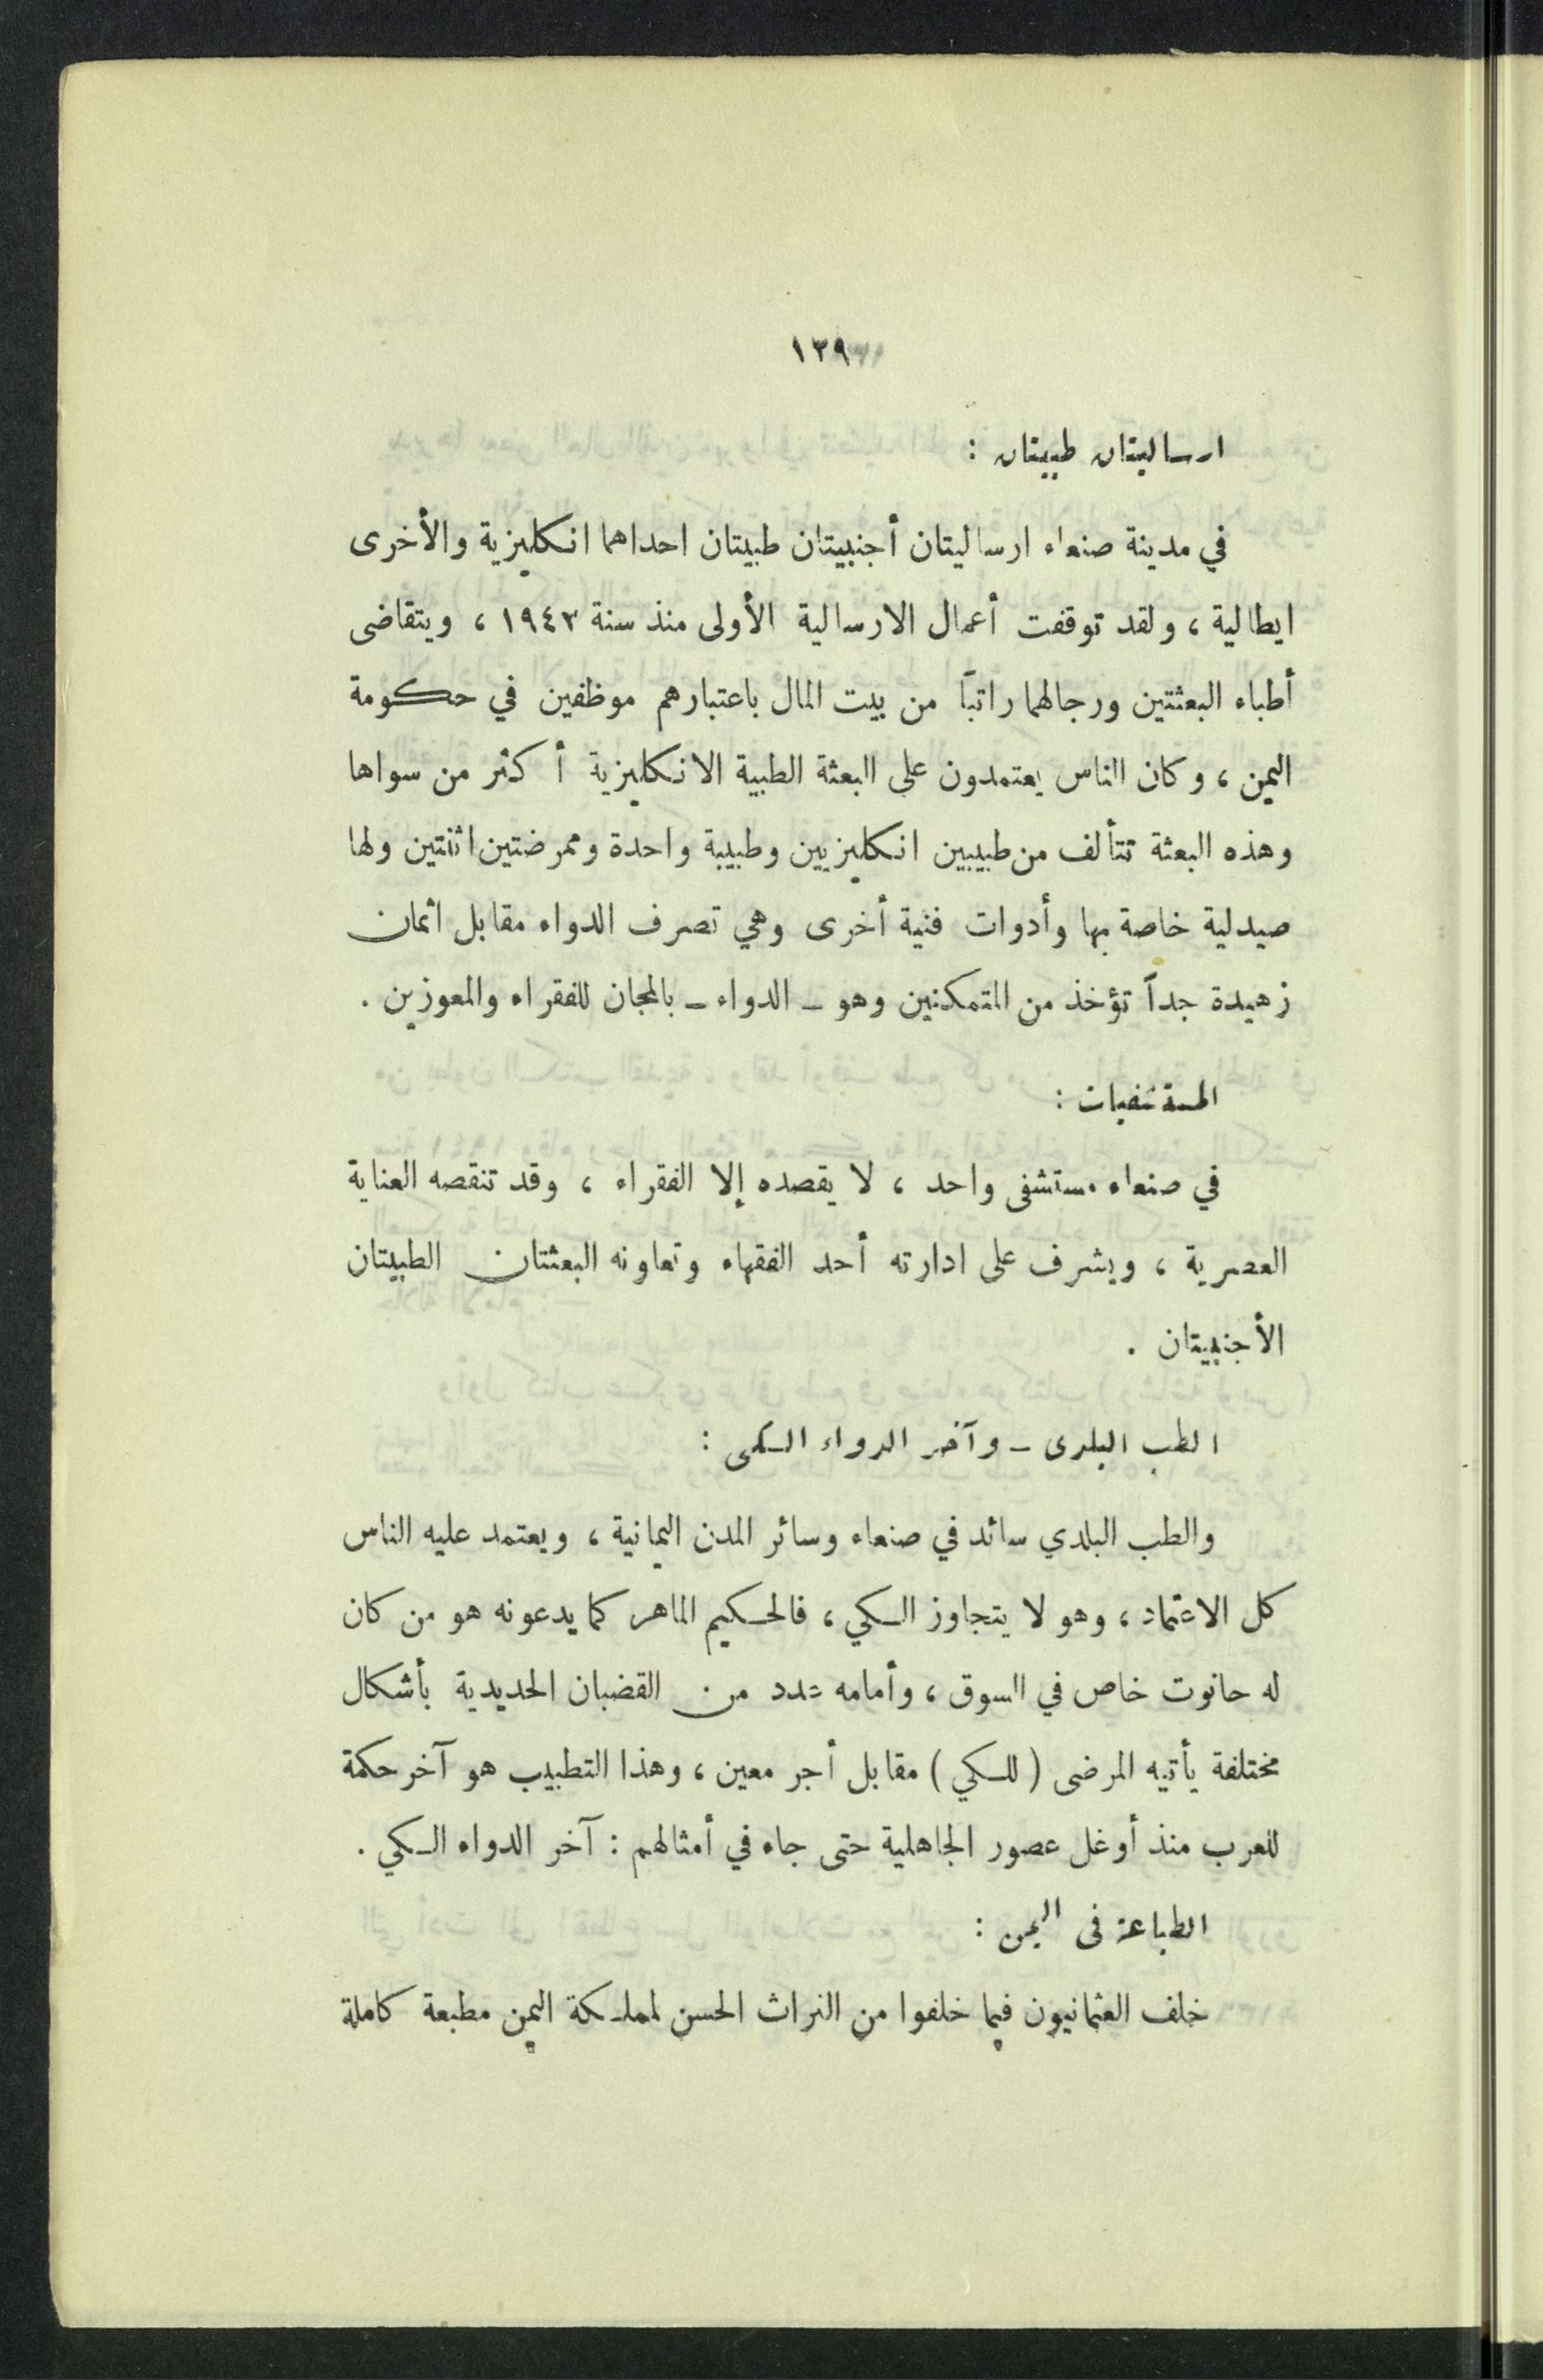 ١٢٩
ارساليتان طبيتان :
في مدينة صنعاء ارساليتان أجنبيتان طبيتان احداهما انكليزية والأخرى
ايطالية ، ولقد توقفت أعمال الارسالية الأولى منذ سنة ١٩٤٣ ، ويتقاضى
أطباء البعثتين ورجالهما راتباً من بيت المال باعتبارهم موظفين في حكومة
اليمن ، وكان الناس يعتمدون على البعثة الطبية الانكليزية أكثر من سواها
وهذه البعثة تتألف من طبيبين انكليزيين وطبيبة واحدة وممرضتين اثنتين ولها
صيدلية خاصة بها وأدوات فنية أخرى وهي تصرف الدواء مقابل اثمان
زهيدة جداً تؤخذ من المتمكنين وهو ـ الدواء ـ بالمجان للفقراء والمعوزين .
المستشفيات :
في صنعاء مستشفى واحد ، لا يقصده إلا الفقراء ، وقد تنقصه العناية
العصرية ، ويشرف على ادارته أحد الفقهاء وتعاونه البعثتان الطبيتان
الأجنبيتان .
الطب البلدى ـ وآخر الدواء الكى :
والطب البلدي سائد في صنعاء وسائر المدن اليمانية ، ويعتمد عليه الناس
كل الاعتماد ، وهو لا يتجاوز الكي ، فالحكيم الماهر كما يدعونه هو من كان
له حانوت خاص في السوق ، وأمامه عدد من القضبان الحديدية بأشكال
مختلفة يأتيه المرضى ( للكي ) مقابل أجر معين ، وهذا التطبيب هو آخر حكمة
للعرب منذ أوغل عصور الجاهلية حتى جاء في أمثالهم : آخر الدواء الكي .
الطباعة فى اليمن :
خلف العثمانيون فيما خلفوا من التراث الحسن لمملكة اليمن مطبعة كاملة